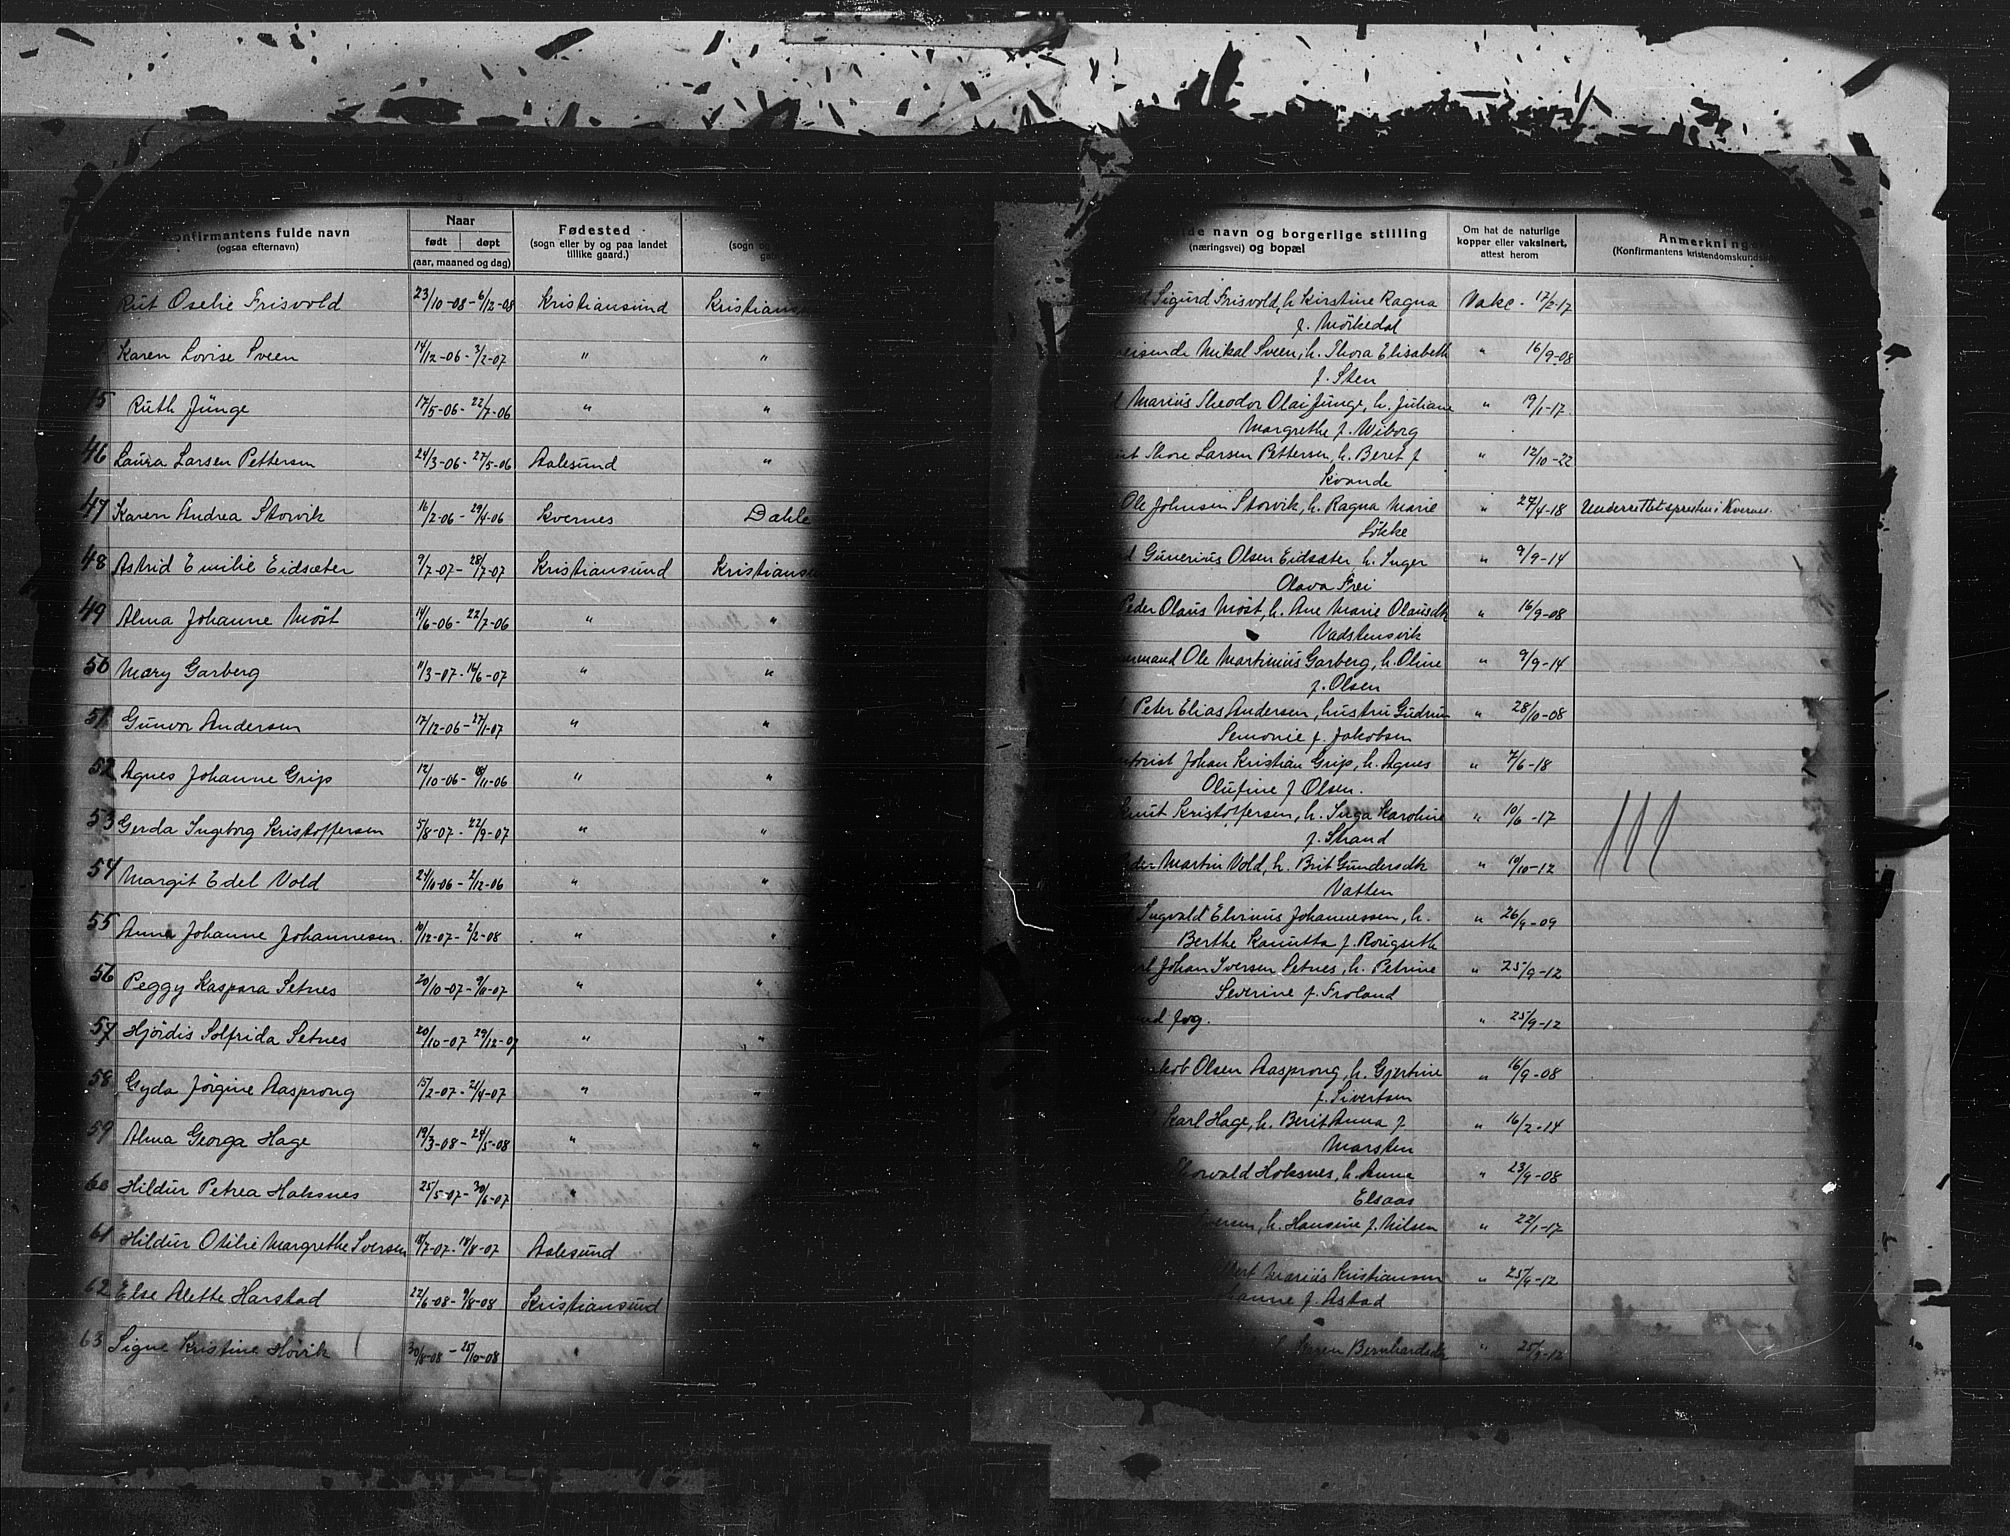 Konfirmantens fulde navn
(ogsaa efternavn)
Naar
født døpt
(aar, maaned og dag)
Fødested
(sogn eller by og paa landet
tillike gaard.)
(sogn og
navn og borgerlige stilling
(næringsvei) og bopæl
Om hat de naturlige
kopper eller vaksinert,
attest herom
Anmerkninger
(Konfirmantens kristendomskundskap
Rut Oselie Frisvold 23/10-08 - 6/12-08 Kristiansund Kristians
Sigurd Frisvold, h. Kirstine Ragna Vakc. 17/2-17
f. Mörkedal
Karen Lovise Sveen 14/12-06 - 3/2-07 " "
reisende Mikal Sveen, h. Thora Elisabeth " 16/9-08
f. Sten
45 Ruth Junge 17/5-06 - 22/7-06 " "
Marius Theodor Olai Junge, h. Juliane " 19/1-17
Margrethe f. Wiborg
46 Laura Larsen Pettersen 24/3-06 - 27/5-06 Aalesund "
Thore Larsen Pettersen, h. Beret f " 12/10-22
Kvande
47 Karen Andrea Storvik 16/2-06 - 29/4-06 Kvernes Dahle
Ole Johnsen Storvik, h. Ragna Marie " 27/4-18 Underrettet spresten i Kvernes.
Lökke
48 Astrid Emilie Eidsæter 9/7-07 - 28/7-07 Kristiansund Kristians
Gunerius Olsen Eidsæter, h. Inger " 9/9-14
Olava Frei
49 Alma Johanne Möst 14/6-06 - 22/7-06 " "
Peder Olaus Möst, h. Ane Marie Olausdtr " 16/9-08
Vadstensvik
50 Mary Garberg 11/3-07 - 16/6-07 " "
Ole Martinius Garberg, h. Oline " 9/9-14
f. Olsen
51 Gunvor Andersen 17/12-06 - 27/1-07 " "
Peter Elias Andersen, hustru Gudrun " 28/10-08
Semonie f. Jakobsen
52 Agnes Johanne Grip 12/10-06 - 18/11-06 " "
Johan Kristian Grip, h. Agnes " 7/6-18
Olufine f Olsen.
53 Gerda Ingeborg Kristoffersen 5/8-07 - 22/9-07 " "
Knut Kristoffersen, h. Inga Karoline " 10/6-17
f. Strand
54 Margit Edel Vold 24/10-06 - 2/12-06 " "
Martin Vold, h. Brit Gundersdtr " 19/10-12
Vatten
55 Anna Johanne Johannesen. 10/12-07 - 2/2-08 " "
Ingvald Elvinus Johannessen, h. " 26/9-09
Berthe Kanutta f. Rougseth
56 Peggy Kaspara Setnes 20/10-07 - 9/11-07 " "
Johan Iversen Setnes, h. Petrine " 25/9-12
Severine f. Froland
57 Hjördis Solfrida Setnes 20/10-07 29/12-07 " "
fvg. " 25/9-12
58 Gyda Jörgine Aasprong 15/2-07 - 21/4-07 " "
Jakob Olsen Aasprong, h. Gjertine " 16/9-08
f. Sivertsen
59 Alma Georga Hage 19/3-08 - 24/5-08 " "
Karl Hage, h. Berit Anna f " 16/2-14
Marsten
60 Hildur Petrea Hoksnes 25/5-07 - 30/6-07 "
Thorvald Hoksnes, h. Anna " 23/9-08
Elsaas
61 Hildur Otilie Margrethe Iversen 14/7-07 - 18/8-07 Aalesund
Iversen, h. Hansine f. Nilsen " 22/1-17
62 Else Alette Harstad 22/6-08 - 9/8-08 Kristiansund
Marius Kristiansen " 25/9-12
f. Astad
63 Signe Kristine Hövik 30/8-08 - 25/10-08 "
Karen Bernhardsdtr " 25/9-12